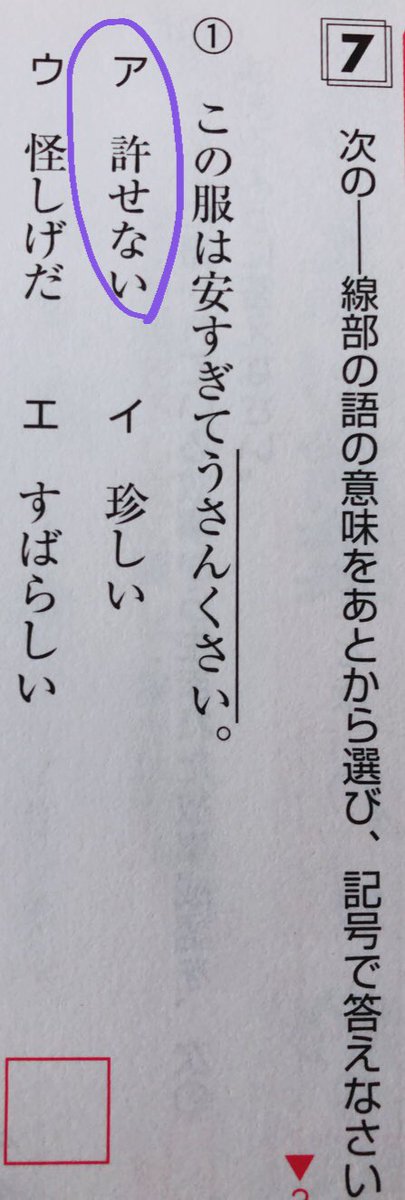 7 次の――線部の語の意味をあとから選び、記号で答えなさい
① この服は安すぎてうさんくさい。
ア 許せない イ 珍しい
ウ 怪しげだ エ すばらしい